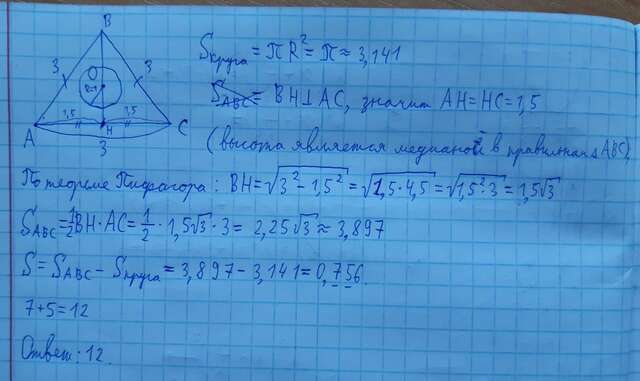 B
3 O 3
R=1
1,5 1,5
A H C
3
Sкруга = πR² = π ≈ 3,141
S_ABC = BH ⊥ AC, значит AH = HC = 1,5
(высота является медианой в правильном △ABC)
По теореме Пифагора: BH = √(3² − 1,5²) = √(1,5·4,5) = √(1,5²·3) = 1,5√3
S_ABC = 1/2 BH·AC = 1/2 · 1,5√3 · 3 = 2,25√3 ≈ 3,897
S = S_ABC − Sкруга = 3,897 − 3,141 = 0,756.
7+5=12
Ответ: 12.